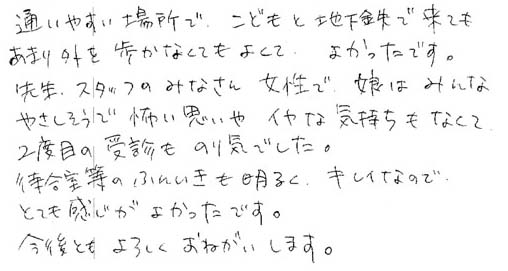 通いやすい場所で、こどもと地下鉄で来ても
あまり外を歩かなくてもよくて、よかったです。
先生、スタッフのみなさん 女性で、娘はみんな
やさしそうで怖い思いや イヤな気持ちもなくて、
2度目の受診も のり気でした。
待合室等の ふんいきも明るく、キレイなので、
とても感じがよかったです。
今後とも よろしく おねがいします。